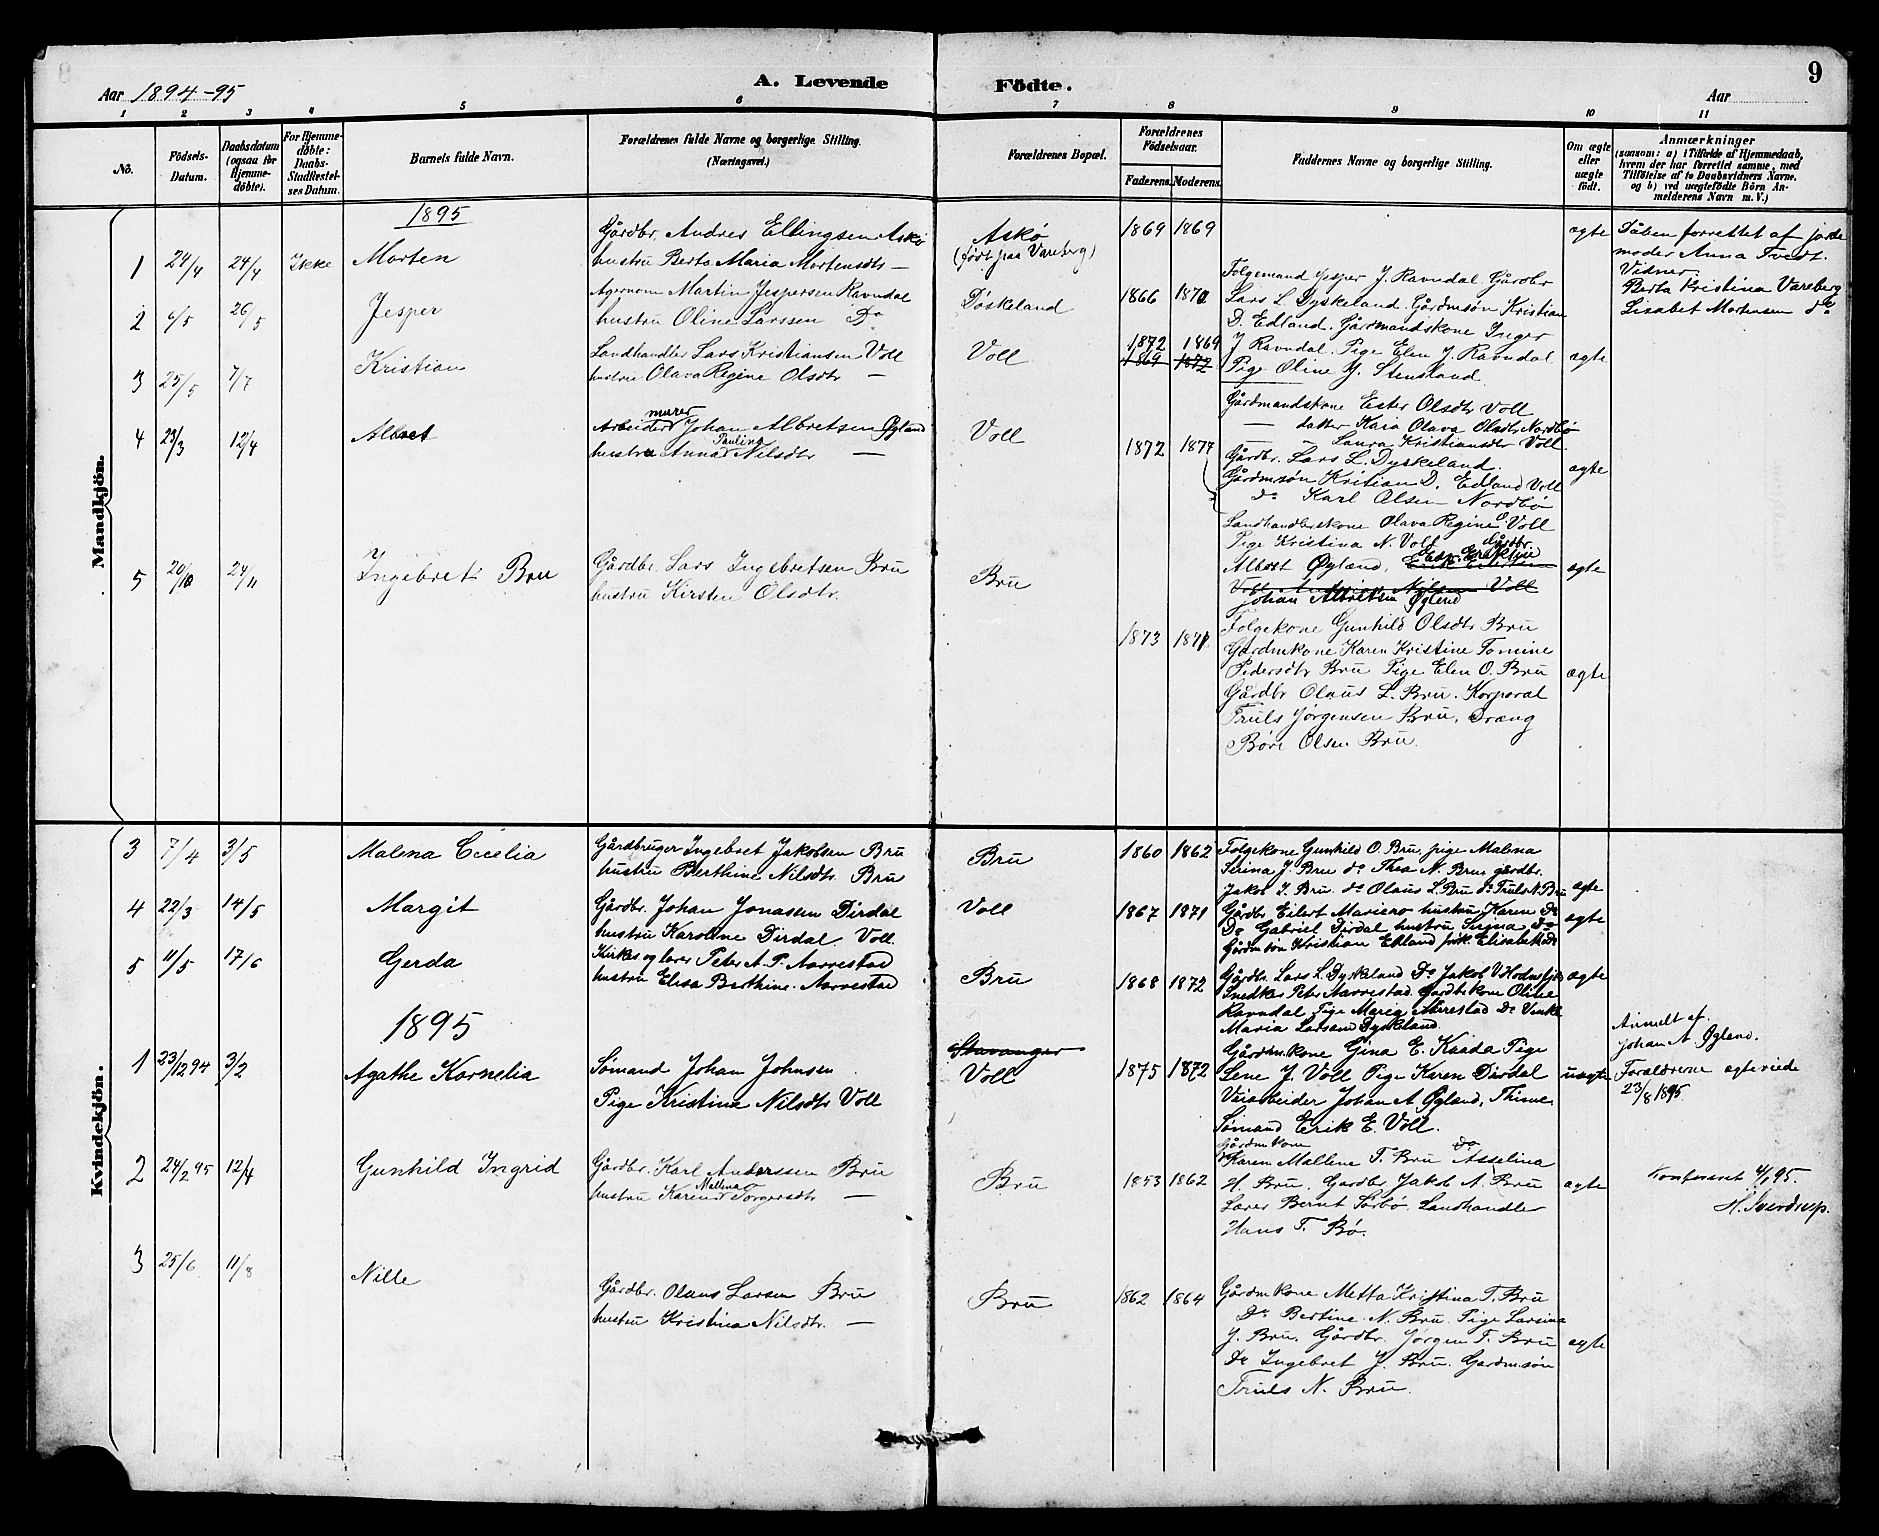 Aar 1894-95
A. Levende Födte.
9
Aar
1 2 3 4 5 6 7 8 9 10 11
No.
Födsels-Datum.
Daabsdatum (ogsaa for Hjemme-döbte).
For Hjemme-döbte: Daabs-Stadfestel-ses Datum.
Barnets fulde Navn.
Forældrenes fulde Navne og borgerlige Stilling. (Næringsvei.)
Forældrenes Bopæl.
Forældrenes Födselsaar.
Faderens. Moderens.
Faddernes Navne og borgerlige Stilling.
Om ægte eller uægte födt.
Anmærkninger
(saasom: a) i Tilfælde af Hjemmedaab, hvem der har forrettet samme, med Tilföielse af to Daabsvidners Navne, og b) ved uægtefödte Börn An-melderens Navn m. V.)
Mandkjön.
1895
1 24/4 24/4 Ikke Morten
Gårdbr. Andres Ellingsen Askø
hustru Berta Maria Mortensdtr —
Askø
(født paa Vareberg)
1869 1869
ægte
Dåben forrettet af jorde
moder Anna Tvedt.
Vidner.
Berta Kristina Vareberg
Lisabet Mortensen do
2 6/5 26/5 Jesper
Agernom Martin Jespersen Ravndal
hustru Oline Larssen Do
Døskeland
1866 1871
Folgemand Jesper J. Ravndal Gårdbr
Lars L. Dyskeland. Gårdmsøn Kristian
D. Edland. Gårdmandskone Inger
J Ravndal. Pige Elen J. Ravndal
Pige Oline J. Stensland
ægte
3 25/5 7/7 Kristian
Landhandler Lars Kristiansen Voll
hustru Olava Regine Olsdtr —
Voll
1872 1869
1869 1872
Gårdmandskone Ester Olsdtr Voll
— datter Kaia Olava Olsdtr Nordbø
— — Laura Kristiansdtr Voll
Gårdbr. Lars L. Dyskeland.
Gårdmsøn Kritian D. Edland Voll
do Karl Olsen Nordbø
ægte
4 23/3 12/4 Albret
murer
Arbeider Johan Albretsen Øgland
Paulina
hustru Anna Nilsdtr —
Voll
1872 1874
Landhandlerskone Olava Regine O. Voll
Pige Kristina N. Voll Gårdbr.
Albret Øgland,
Voll
Johan Albretsen Øglend
ægte
5 20/10 24/11 Ingebret Bru
Gårdbr. Lars Ingebretsen Bru
hustru Kirsten Olsdtr.
Bru
1873 1871
Folgekone Gunhild Olsdtr Bru
Gårdmkone Karen Kristine Tomine
Pedersdtr Bru Pige Elen O. Bru
Gårdbr Olaus L. Bru. Korporal
Truls Jørgensen Bru. Dræng
Børe Olsen Bru.
ægte
Kvindekjön.
3 7/4 3/5 Malena Cecelia
Gårdbruger Ingebret Jakobsen Bru
hustru Berthine Nilsdtr. Bru
Bru
1860 1862
Folgekone Gunhild O. Bru, pige Malena
Serina J. Bru do Thea N. Bru gårdbr.
Jakob I. Bru. do Olaus L. Bru do Truls N. Bru
ægte
4 22/3 14/5 Margit
Gårdbr. Johan Jonassen Dirdal
hustru Karoline Dirdal. Voll.
Voll
1867 1871
Gårdbr Eilert Mariero hustru Karen Do
Do Gabriel Dirdal hustru Serina Do
Gårdmsøn Kristian Edland
ægte
5 11/5 17/6 Gerda
Kirkes og lærer Peter A. P. Aarrestad
hustru Elisa Berthine Aarrestad
Bru
1868 1872
Gårdbr. Lars L. Dyskeland Do Jakob V.
Snedker Peter Aarrestad. Gårdbrkone Oline
Ravndal Pige Aarrestad Do
Maria Larsen Dyskland.
ægte
1895
1 23/12 94 3/2 Agathe Kornelia
Sømand Johan Johnsen
Pige Kristine Nilsdtr Voll
Stavanger
Voll
1875 1872
Gårdmkone Gina E. Kaada Pige
Lene J. Voll Pige Karen Dirdal
Veiarbeider Johan A Øgland,
Sømand Erik E. Voll.
uægte
Anmelt af
Johan A. Øglend.
Forældrene ægteviede
23/8 1895.
2 24/2 95 12/4 Gunhild Ingrid
Gårdbr. Karl Anderssen Bru
Mallena
hustru Karen Torgersdtr —
Bru
1853 1862
Gårdmkone
Karen Mallene T. Bru Do Asselina
H. Bru. Gårdbr. Jakob A. Bru
Lærer Bernt Sørbø. Landhandler
Hans T. Bø.
ægte
Konfereret 4/1 95.
H. Sverdrup.
3 25/6 11/8 Nille
Gårdbr. Olaus Larsen Bru
hustru Kristina Nilsdtr. —
Bru
1862 1864
Gårdmkone Metta Kristina T. Bru
Do Bertine N. Bru. Pige Larsina
J. Bru. Gårdbr. Jørgen T. Bru
Do Ingebret J. Bru. Gårdmsøn
Truls N. Bru.
ægte